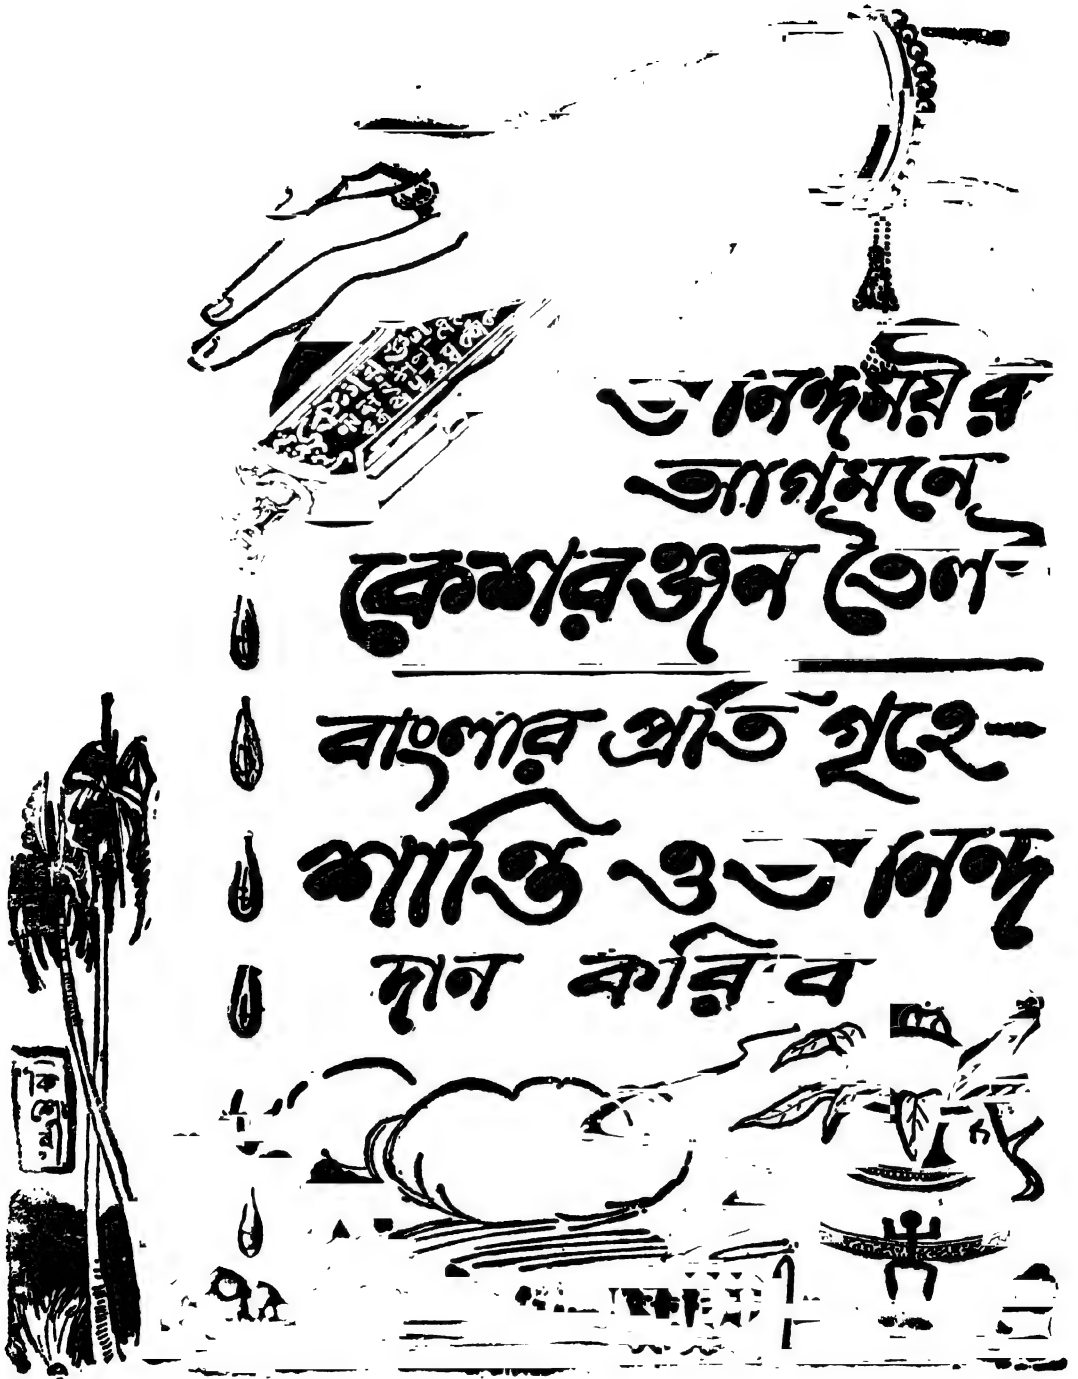 আনন্দময়ীর
আগমনে
কেশরঞ্জন তৈল
বাংলার প্রতি গৃহে—
শান্তি ও আনন্দ
দান করিবে